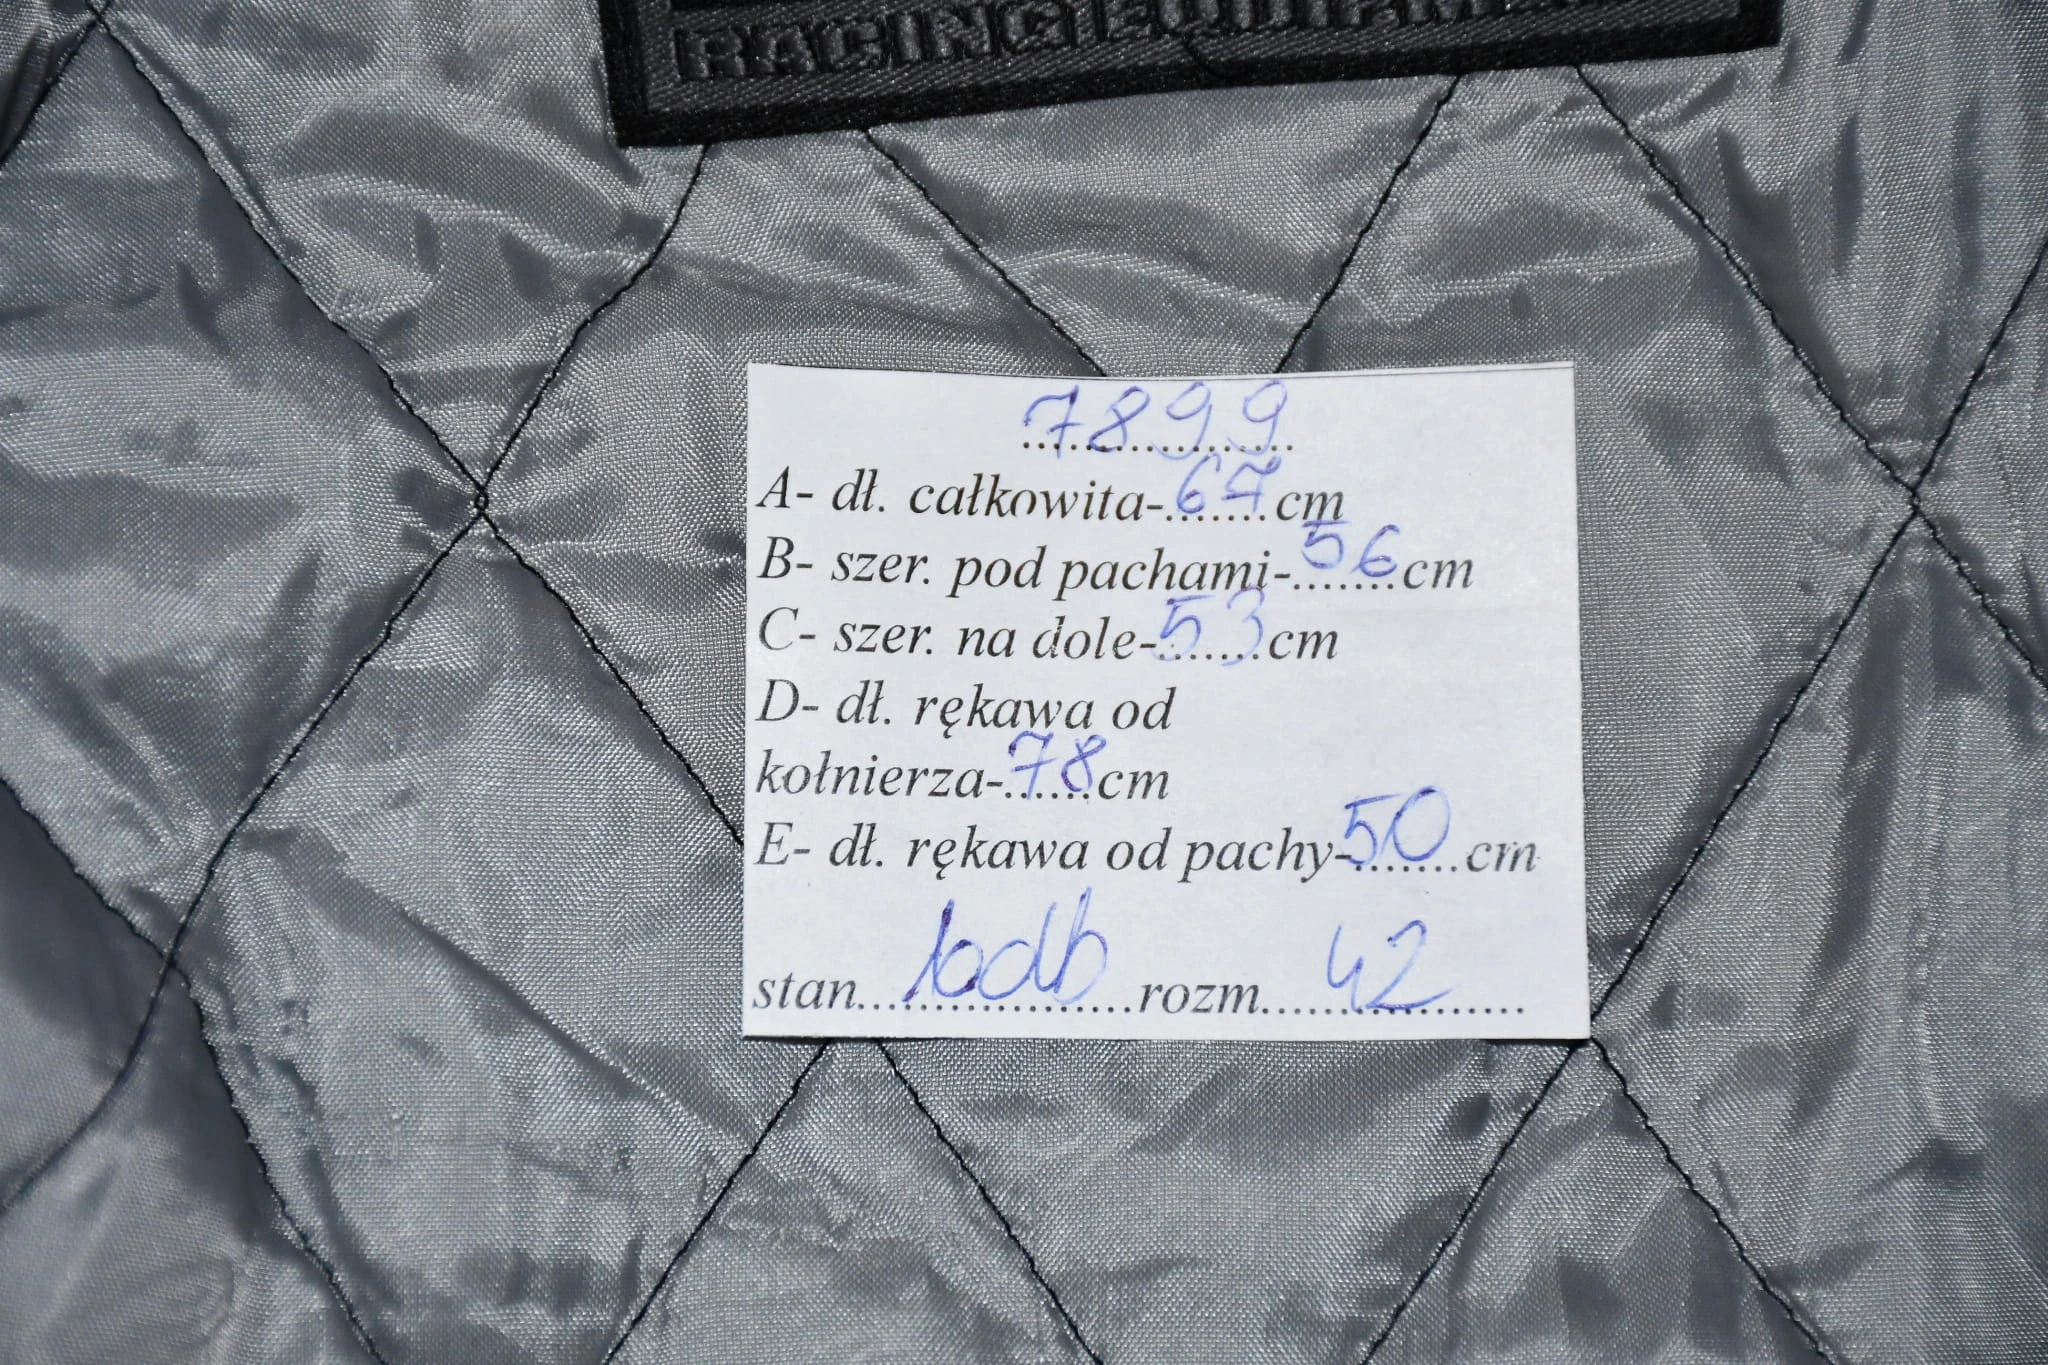 RACING EQUIPMENT
7899
A- dł. całkowita-67cm
B- szer. pod pachami-56cm
C- szer. na dole-53cm
D- dł. rękawa od
kołnierza-78cm
E- dł. rękawa od pachy-50cm
stan bdb rozm. 42